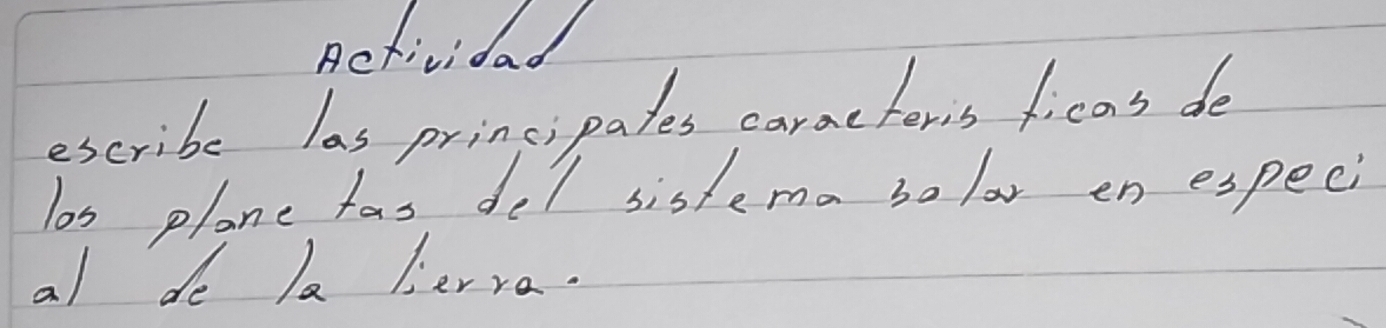 Actividad
escribe las principales caracteristicas de
los planetas del sistema solar en especi
al de la tierra.